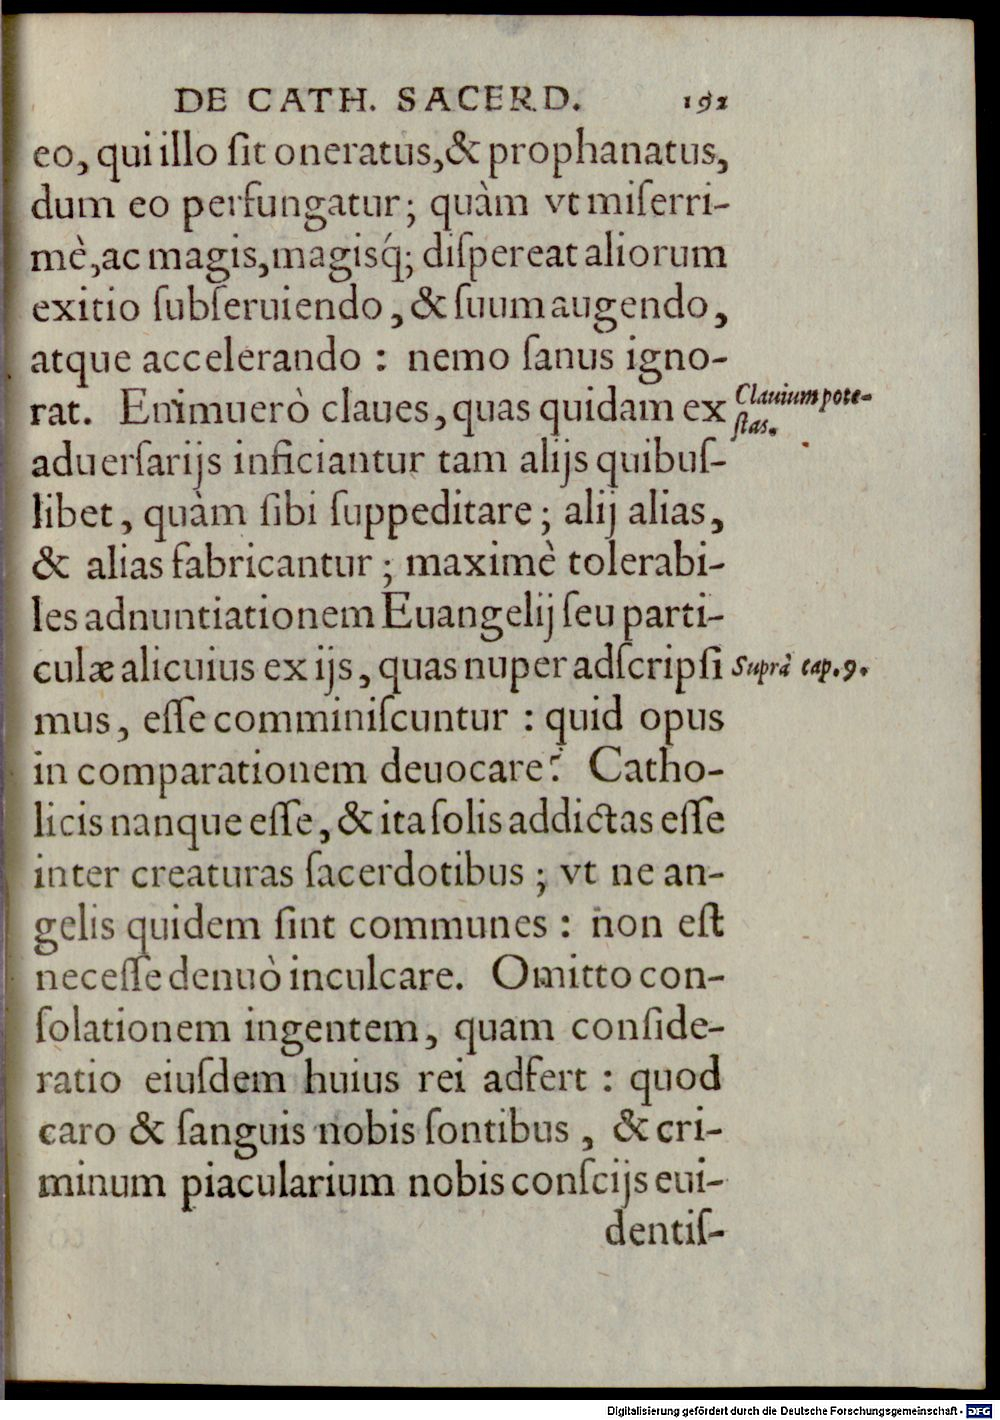 DE CATH. SACERD. 192
eo, qui illo ſit oneratus, & prophanatus,
dum eo perfungatur; quàm vt miſerri-
mè, ac magis, magisq́; diſpereat aliorum
exitio ſubſeruiendo, & ſuum augendo,
atque accelerando : nemo ſanus igno-
rat. Enimuerò claues, quas quidam ex
Clauium pote-
ſtas.
aduerſarijs inficiantur tam alijs quibuſ-
libet, quàm ſibi ſuppeditare; alij alias,
& alias fabricantur; maximè tolerabi-
les adnuntiationem Euangelij ſeu parti-
culæ alicuius ex ijs, quas nuper adſcripſi
Suprà cap. 9.
mus, eſſe comminiſcuntur : quid opus
in comparationem deuocare? Catho-
licis nanque eſſe, & ita ſolis addictas eſſe
inter creaturas ſacerdotibus; vt ne an-
gelis quidem ſint communes : non eſt
neceſſe denuò inculcare. Omitto con-
ſolationem ingentem, quam conſide-
ratio eiuſdem huius rei adfert : quod
caro & ſanguis nobis ſontibus, & cri-
minum piacularium nobis conſcijs eui-
dentiſ-
Digitalisierung gefördert durch die Deutsche Forschungsgemeinschaft - DFG